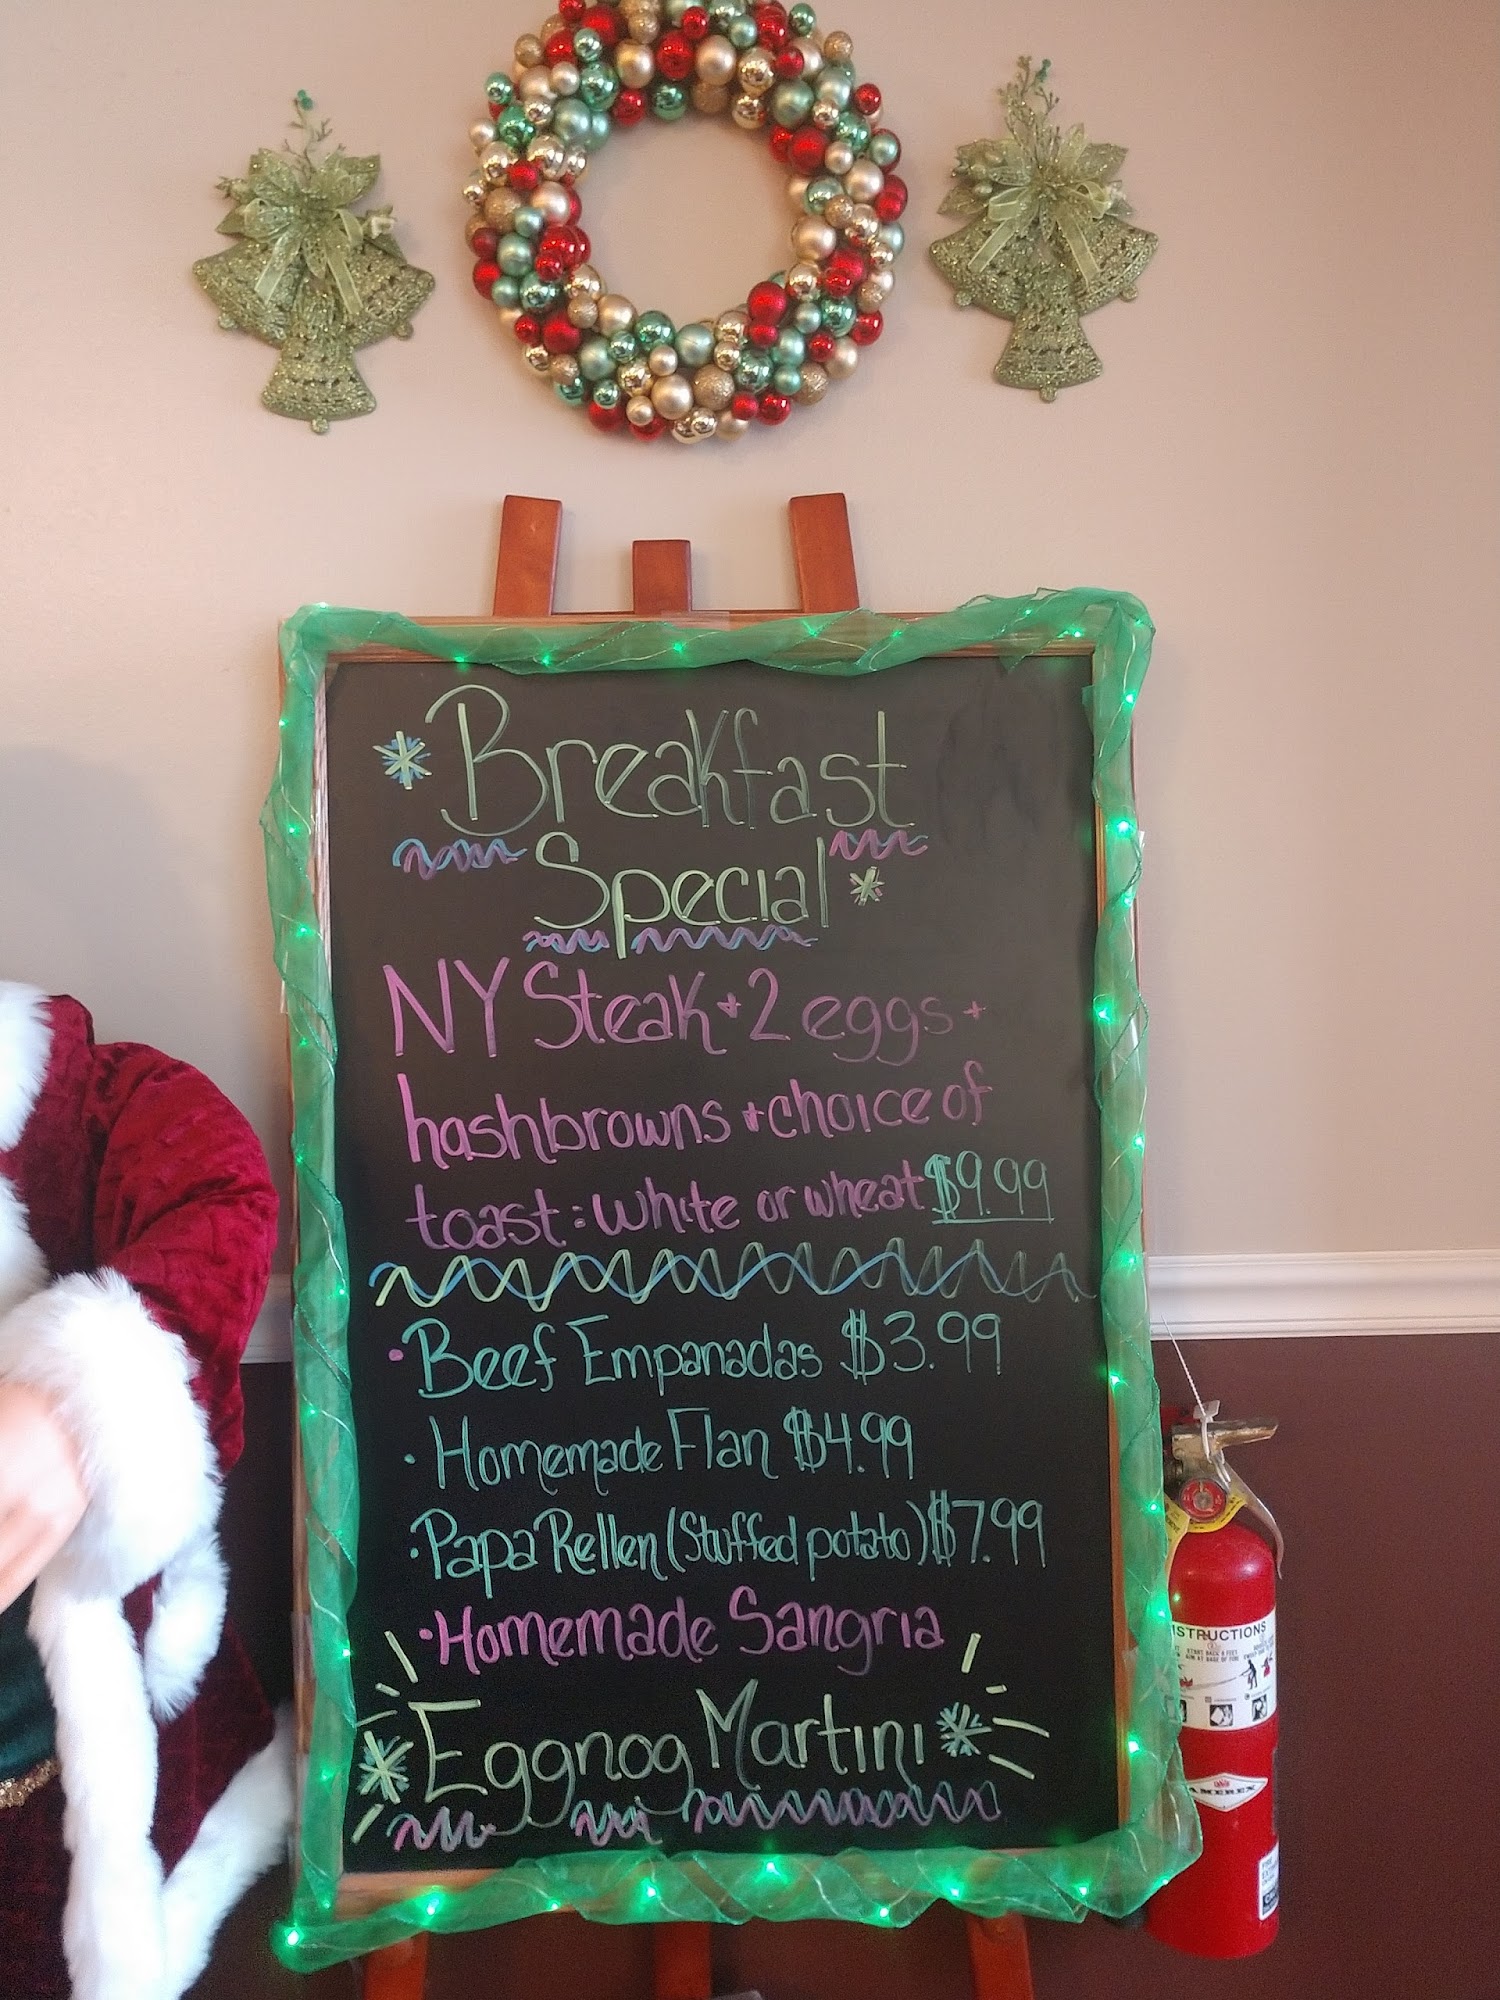 Breakfast
Special
NY Steak + 2 eggs +
hashbrowns + choice of
toast: white or wheat $9.99
• Beef Empanadas $3.99
• Homemade Flan $4.99
• Papa Rellen (Stuffed potato) $7.99
• Homemade Sangria
Eggnog Martini
INSTRUCTIONS
AMEREX